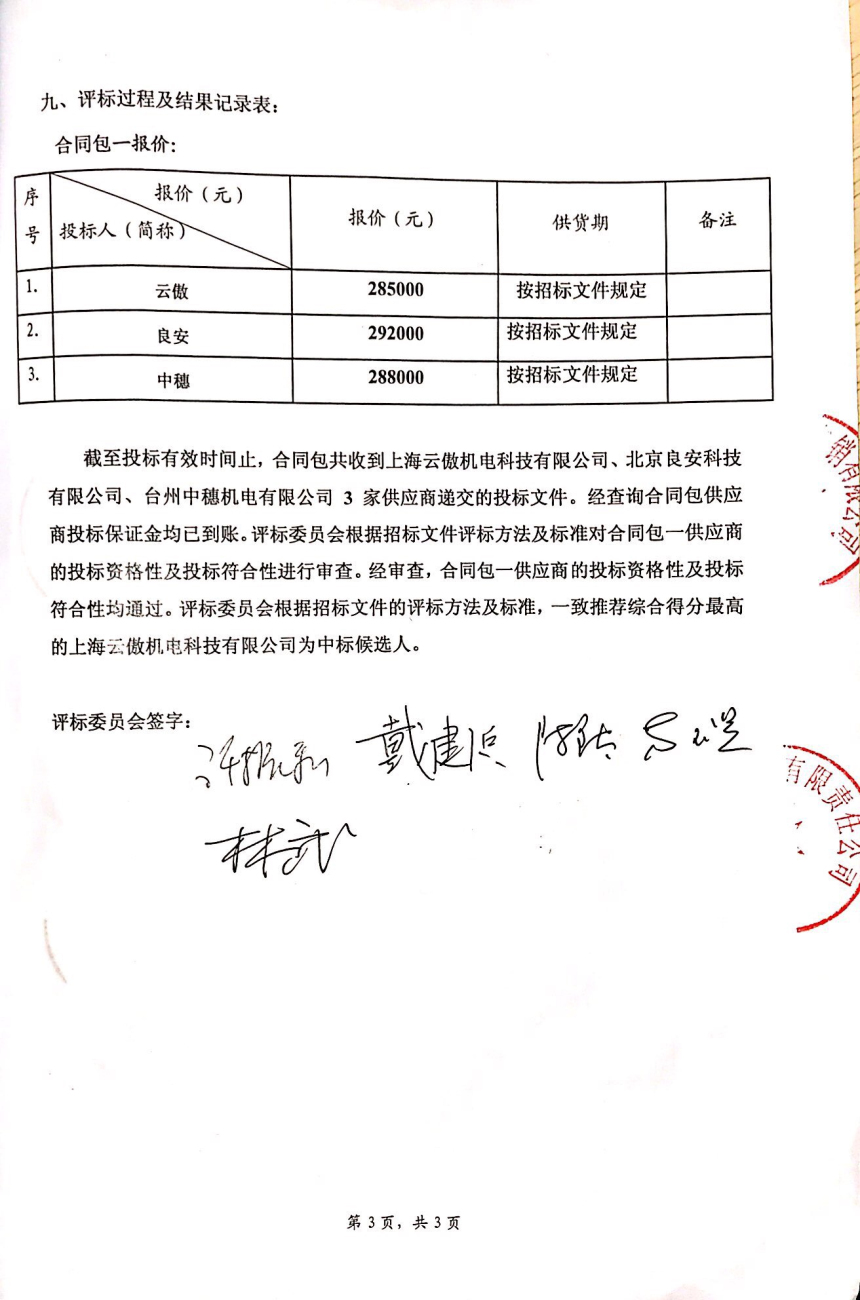 九、评标过程及结果记录表:
合同包一报价:
序号 报价（元） 投标人（简称） 报价（元） 供货期 备注
1. 云傲 285000 按招标文件规定
2. 良安 292000 按招标文件规定
3. 中穗 288000 按招标文件规定
截至投标有效时间止，合同包共收到上海云傲机电科技有限公司、北京良安科技
有限公司、台州中穗机电有限公司 3 家供应商递交的投标文件。经查询合同包供应
商投标保证金均已到账。评标委员会根据招标文件评标方法及标准对合同包一供应商
的投标资格性及投标符合性进行审查。经审查，合同包一供应商的投标资格性及投标
符合性均通过。评标委员会根据招标文件的评标方法及标准，一致推荐综合得分最高
的上海云傲机电科技有限公司为中标候选人。
销有限公司
评标委员会签字:
戴建兵
林武
有限责任公司
第 3 页，共 3 页